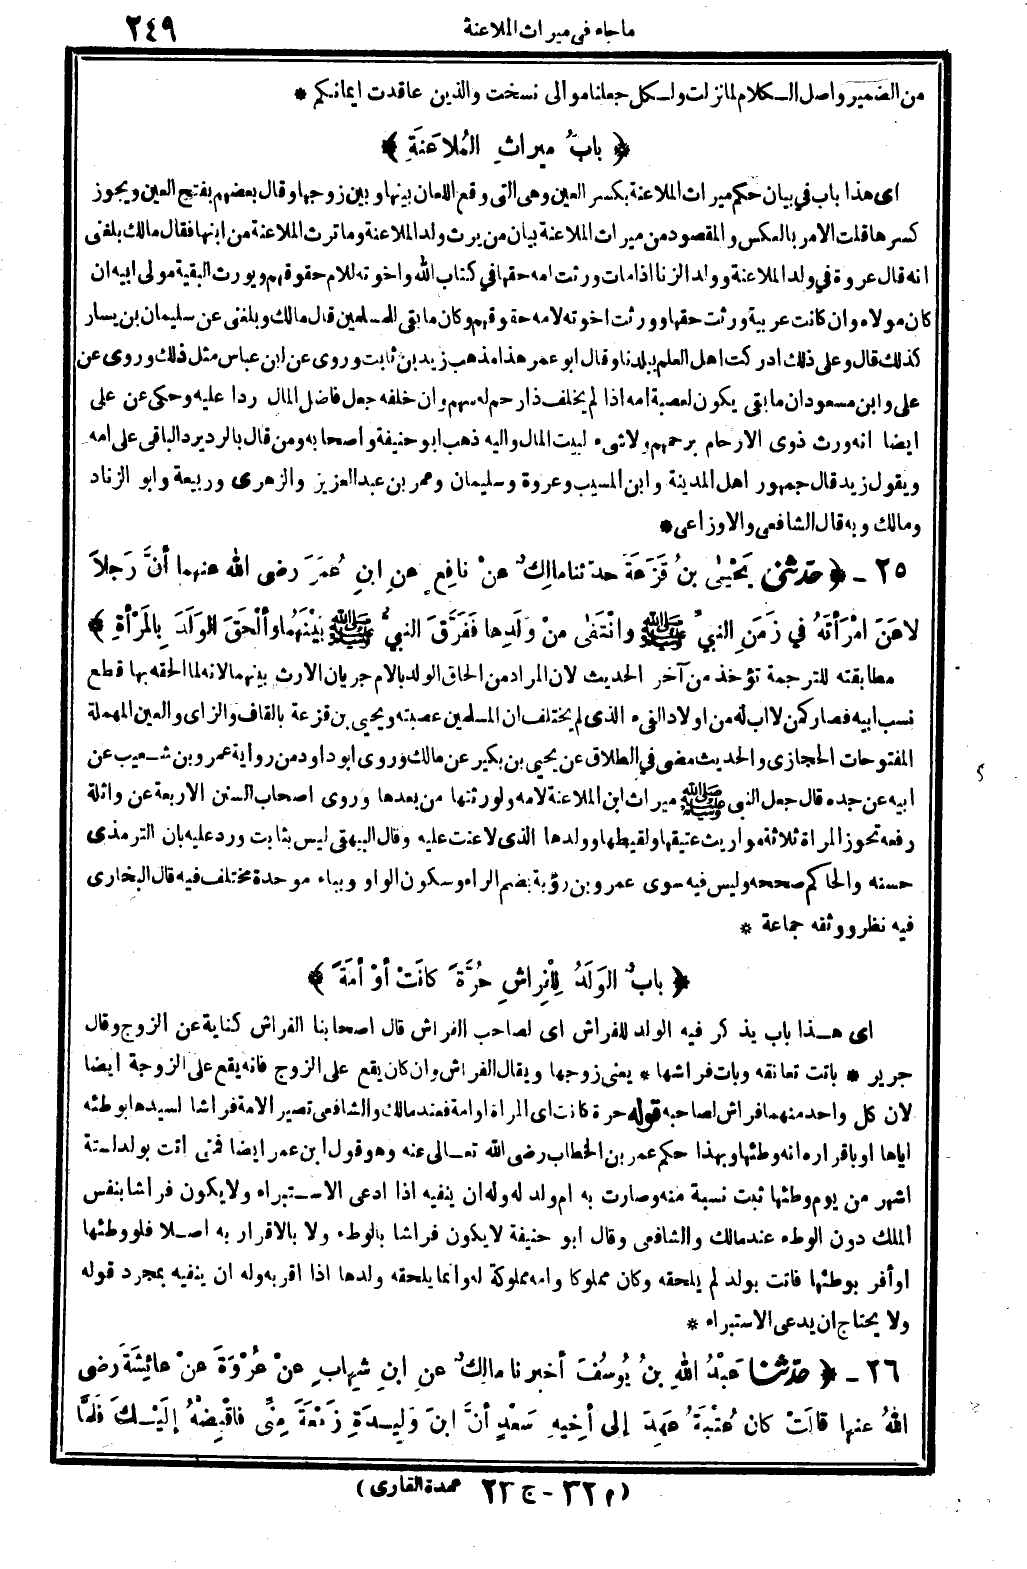 ما جاء في ميراث الملاعنة
٢٤٩
من الضمير واصل الكلام لما نزلت ولكل جعلنا موالى نسخت والذين عاقدت ايمانكم *
﴿ بابُ ميراثِ المُلاعَنَةِ ﴾
اى هذا باب في بيان حكم ميراث الملاعنة بكسر العين وهى التى وقع اللعان بينها وبين زوجها وقال بعضهم بفتح العين ويجوز
كسرها قلت الامر بالعكس والمقصود من ميراث الملاعنة بيان من يرث ولد الملاعنة وما ترث الملاعنة من ابنها فقال مالك بلغنى
انه قال عروة في ولد الملاعنة وولد الزنا اذا مات ورثت امه حقها في كتاب الله واخوته للام حقوقهم ويورث البقية مولى ابيه ان
كان مولاه وان كانت عربية ورثت حقها وورثت اخوته لامه حقوقهم وكان ما بقى للمسلمين قال مالك وبلغنى عن سليمان بن يسار
كذلك قال وعلى ذلك ادركت اهل العلم ببلدنا وقال ابو عمر هذا مذهب زيد بن ثابت وروى عن ابن عباس مثل ذلك وروى عن
على وابن مسعود ان ما بقى يكون لعصبة امه اذا لم يخلف ذا رحم له سهم وان خلفه جعل فاضل المال ردا عليه وحكى عن على
ايضا انه ورث ذوى الارحام برحمهم ولا شىء لبيت المال واليه ذهب ابو حنيفة واصحابه ومن قال بالرد يرد الباقى على امه
ويقول زيد قال جمهور اهل المدينة وابن المسيب وعروة وسليمان وعمر بن عبد العزيز والزهرى وربيعة وابو الزناد
ومالك وبه قال الشافعى والاوزاعى *
٢٥ - ﴿ حدثنى يَحْيَى بنُ قَزَعَةَ حدثنا مالِكٌ عنْ نافِعٍ عنِ ابنِ عُمَرَ رضى الله عنهما أنَّ رَجلاً
لاعَنَ امْرأتَهُ في زَمَنِ النبيِّ ﷺ وانْتَفَى منْ وَلَدِها فَفَرَّقَ النبيُّ ﷺ بَيْنَهُما وألْحَقَ الوَلَدَ بِالمَرْأةِ ﴾
مطابقته للترجمة تؤخذ من آخر الحديث لان المراد من الحاق الولد بالام جريان الارث بينهما لانه لما الحقه بها قطع
نسب ابيه فصار كمن لا اب له من اولاد الفىء الذى لم يختلف ان المسلمين عصبته ويحيى بن قزعة بالقاف والزاى والعين المهملة
المفتوحات الحجازى والحديث مضى في الطلاق عن يحيى بن بكير عن مالك وروى ابو داود من رواية عمرو بن شعيب عن
ابيه عن جده قال جعل النبى ﷺ ميراث ابن الملاعنة لامه ولورثتها من بعدها وروى اصحاب السنن الاربعة عن واثلة
رفعه تحوز المراة ثلاثة مواريث عتيقها ولقيطها وولدها الذى لاعنت عليه وقال البيهقى ليس بثابت ورد عليه بان الترمذى
حسنه والحاكم صححه وليس فيه سوى عمرو بن رؤبة بضم الراء وسكون الواو وبباء موحدة مختلف فيه قال البخارى
فيه نظر ووثقه جماعة *
﴿ بابٌ الوَلَدُ لِلْفِراشِ حُرَّةً كانَتْ أوْ أمَةً ﴾
اى هذا باب يذكر فيه الولد للفراش اى لصاحب الفراش قال اصحابنا الفراش كناية عن الزوج وقال
جرير * باتت تعانقه وبات فراشها * يعنى زوجها ويقال الفراش وان كان يقع على الزوج فانه يقع على الزوجة أيضا
لان كل واحد منهما فراش لصاحبه قوله حرة كانت اى المراة او امة فعند مالك والشافعى تصير الامة فراشا لسيدها بوطئه
اياها او باقراره انه وطئها وبهذا حكم عمر بن الخطاب رضى الله تعالى عنه وهو قول ابن عمر ايضا فمتى اتت بولد لستة
اشهر من يوم وطئها ثبت نسبة منه وصارت به ام ولد له وله ان ينفيه اذا ادعى الاستبراء ولا يكون فراشا بنفس
الملك دون الوطء عند مالك والشافعى وقال ابو حنيفة لا يكون فراشا بالوطء ولا بالاقرار به اصلا فلو وطئها
او أقر بوطئها فاتت بولد لم يلحقه وكان مملوكا وامه مملوكة له وانما يلحقه ولدها اذا اقر به وله ان ينفيه بمجرد قوله
ولا يحتاج ان يدعى الاستبراء *
٢٦ - ﴿ حدثنا عَبْدُ اللهِ بنُ يُوسُفَ أخبرنا مالِكٌ عنِ ابنِ شِهابٍ عنْ عُرْوَةَ عنْ عائِشَةَ رضى
اللهُ عنها قالَتْ كانَ عُتْبَةُ عَهِدَ إلى أخِيهِ سَعْدٍ أنَّ ابنَ وَلِيدَةِ زَمْعَةَ مِنِّى فاقْبِضْهُ إلَيْكَ فَلَمَّا
( م ٣٢ - ج ٢٣ عمدة القارى )